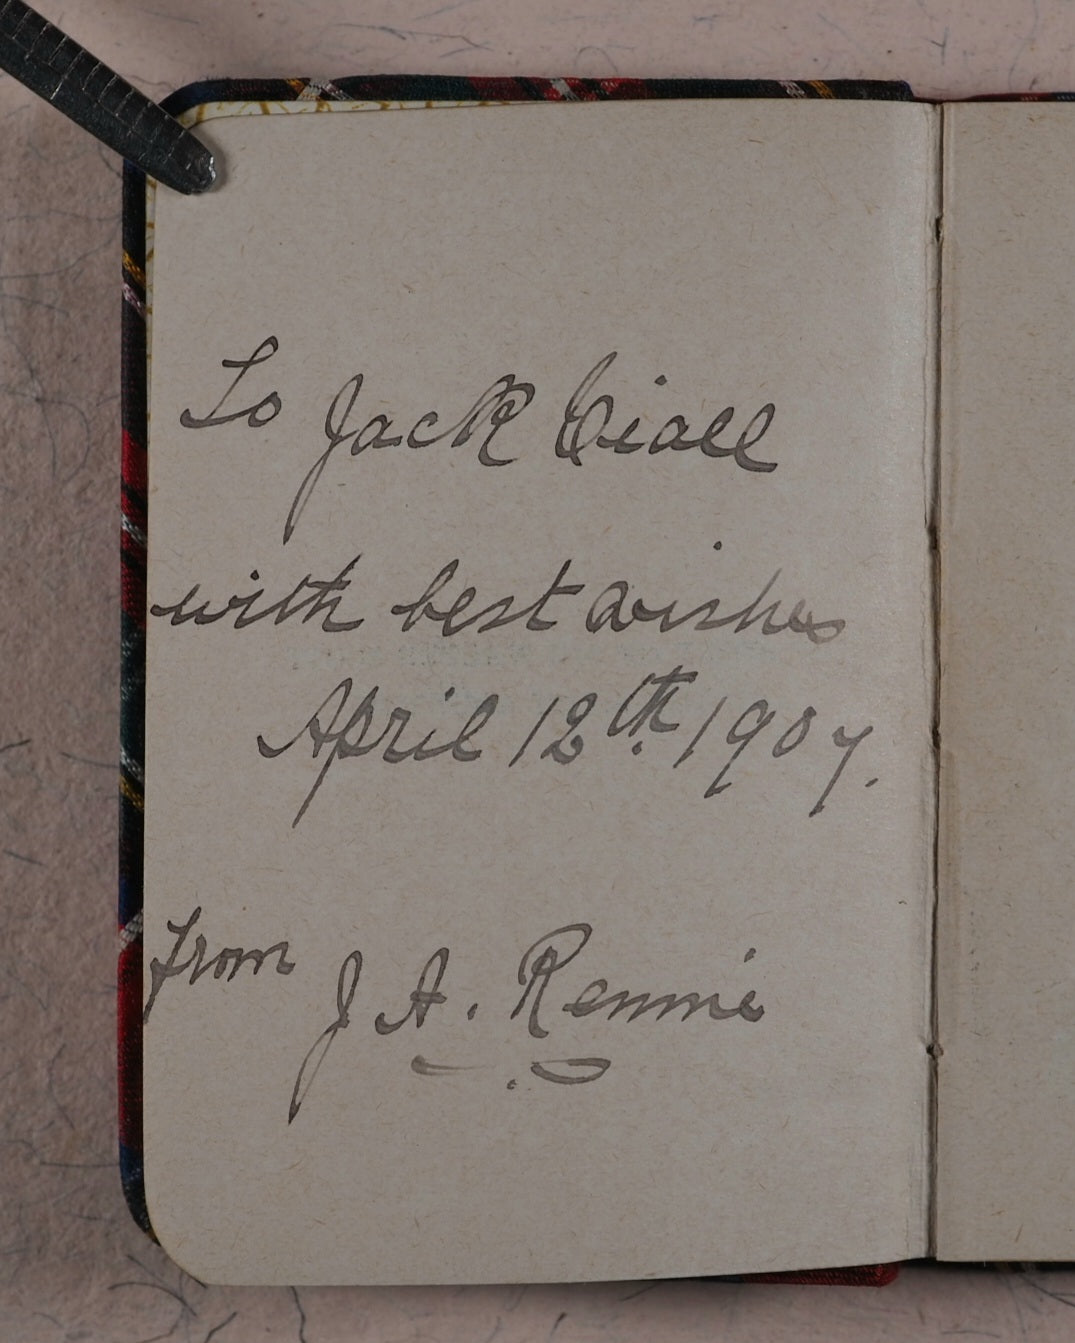 To Jack
with best wishes
April 12th. 1907.
from J. A. Rennie